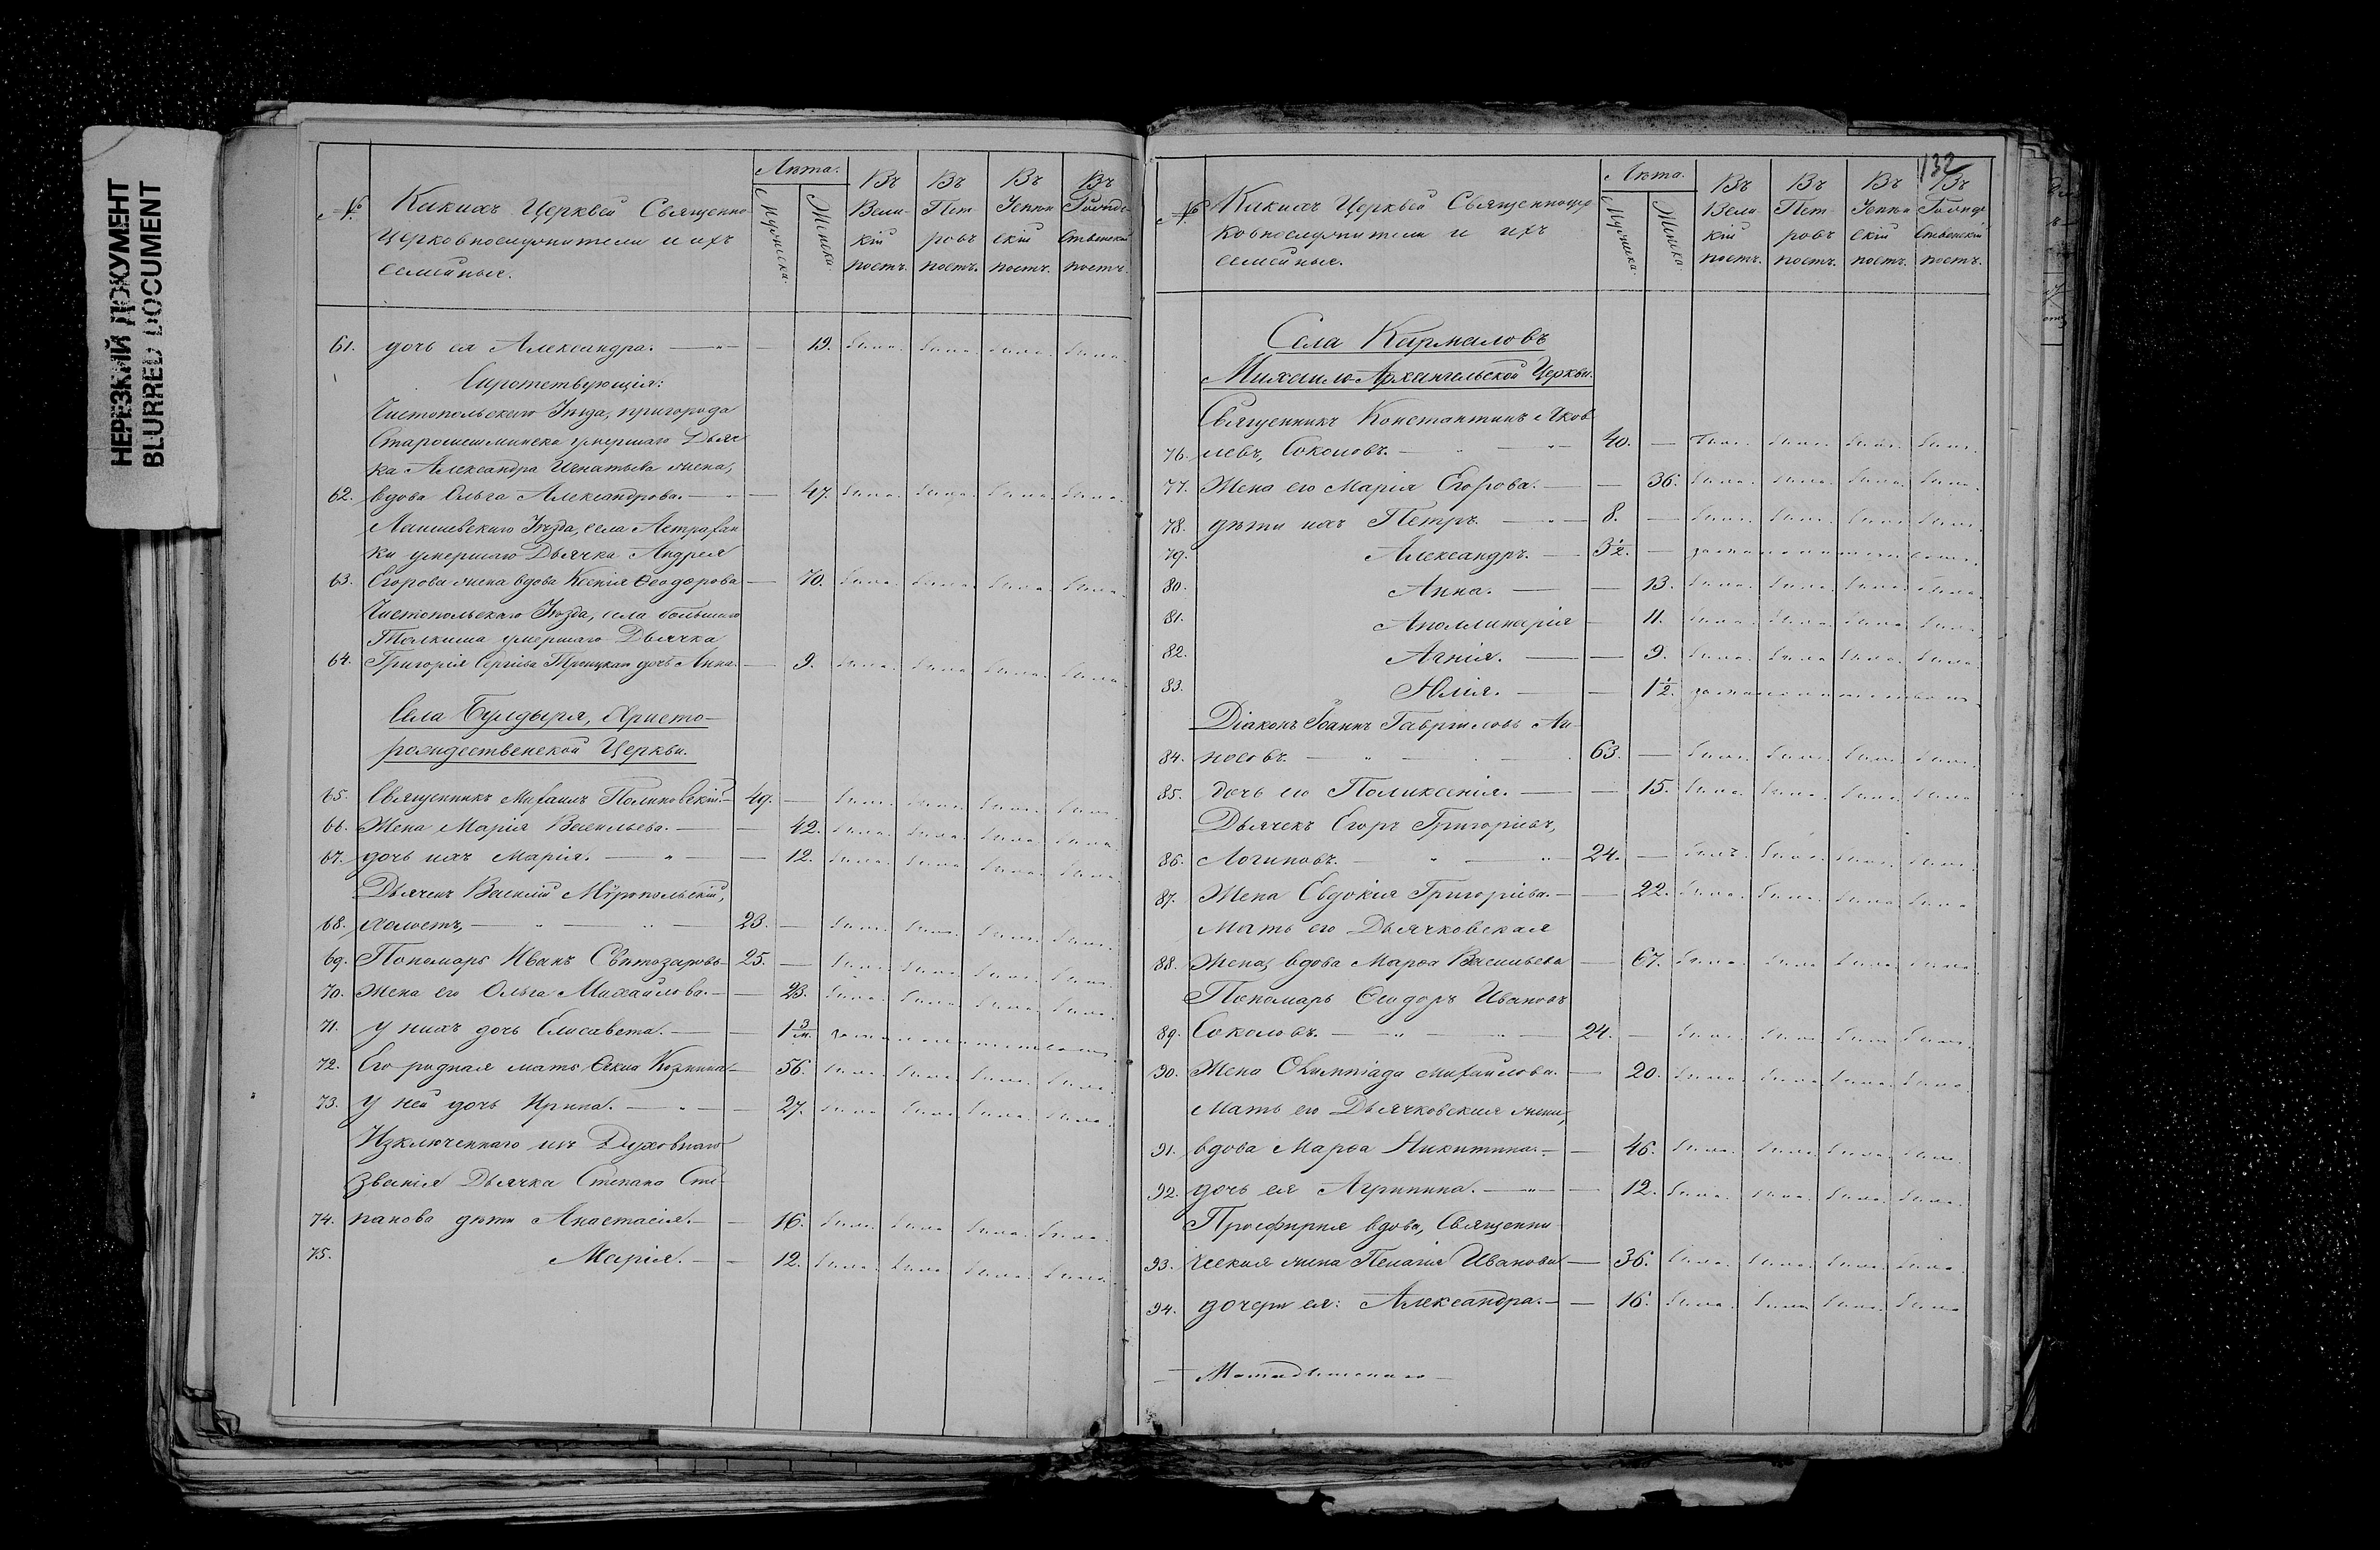 НЕРЕЗКИЙ ДОКУМЕНТ
BLURRED DOCUMENT
№
Какихъ Церквей Священно-
Церковнослужители и ихъ
семейные.
Лѣта.
Мужеска.
Женска.
Въ Вели-
кій
постъ.
Въ Пет
ровъ
постъ.
Въ Успен
скій
постъ.
Въ Рожде-
ственскій
постъ.
61. дочь ея Александра. — 19. была. была. была. была.
Сиротствующія:
Чистопольскаго Уѣзда, пригорода
Старошешминска умершаго Дьяч
ка Александра Игнатьева жена,
62. вдова Ольга Александрова. — 47. была. была. была. была.
Лаишевскаго Уѣзда, села Астрахан
ки умершаго Дьячка Андрея
63. Егорова жена вдова Ксенія Ѳеодорова — 70. была. была. была. была.
Чистопольскаго Уѣзда, села большаго
Толкиша умершаго Дьячка
64. Григорія Сергіева Троицкаго дочь Анна. — 9. была. была. была. была.
Села Булдыря, Христо-
рождественской Церкви.
65. Священникъ Михаилъ Полиновскій. — 49. — былъ. былъ. былъ. былъ.
66. Жена Марія Васильева. — 42. была. была. была. была.
67. дочь ихъ Марія. — 12. была. была. была. была.
Дьячекъ Василій Мѵропольскій,
68. холостъ, — 23. — былъ. былъ. былъ. былъ.
69. Пономарь Иванъ Свѣтозаровъ — 25. — былъ. былъ. былъ. былъ.
70. Жена его Ольга Михайлова. — 23. была. была. была. была.
71. У нихъ дочь Елисавета. — 1 3/м. за малолѣтствомъ.
72. Его родная мать Козмина — 56. была. была. была. была.
73. У ней дочь Ирина. — 27. была. была. была. была.
Изключеннаго изъ Духовнаго
званія Дьячка Степана Сте-
74. панова дѣти Анастасія. — 16. была. была. была. была.
75. Марія. — 12. была. была. была. была.
132
№
Какихъ Церквей Священноцер
ковнослужители и ихъ
семейные.
Лѣта.
Мужеска.
Женска.
Въ Вели
кій
постъ.
Въ Пет
ровъ
постъ.
Въ Успен
скій
постъ.
Въ Рожде
ственскій
постъ.
Села Кармаловъ
Михаило-Архангельской Церкви.
Священникъ Константинъ Яков
76. левъ, Соколовъ. — 40. — былъ. былъ. былъ. былъ.
77. Жена его Марія Егорова. — 36. была. была. была. была.
78. дѣти ихъ Петръ. — 8. — былъ. былъ. былъ. былъ.
79. Александръ. — 3½. — за малолѣтствомъ.
80. Анна. — 13. была. была. была. была.
81. Аполлинарія — 11. была. была. была. была.
82. Агнія. — 9. была. была. была. была.
83. Юлія. — 1½. за малолѣтствомъ
Діаконъ Іоаннъ Гавріиловъ Ли-
84. носовъ. — 63. — былъ. былъ. былъ. былъ.
85. дочь его Поликсенія. — 15. была. была. была. была
Дьячекъ Егоръ Григорьевъ,
86. Логиновъ. — 24. — былъ. былъ. былъ. былъ.
87. Жена Евдокія Григорьева. — 22. была. была. была. была
Мать его Дьячковская
88. Жена, вдова Марѳа Васильева — 67. была. была. была. была.
Пономарь Ѳеодоръ Ивановъ
89. Соколовъ. — 24. — былъ. былъ. былъ. былъ.
90. Жена Олимпіада Михайлова. — 20. была. была. была. была
Мать его Дьячковская жена,
91. вдова Марѳа Никитина. — 46. была. была. была. была.
92. дочь ея Агрипина. — 12. была. была. была. была.
Просфирня вдова, Священни-
93. ческая жена Пелагія Иванова — 36. была. была. была. была.
94. дочери ея: Александра. — 16. была. была. была. была